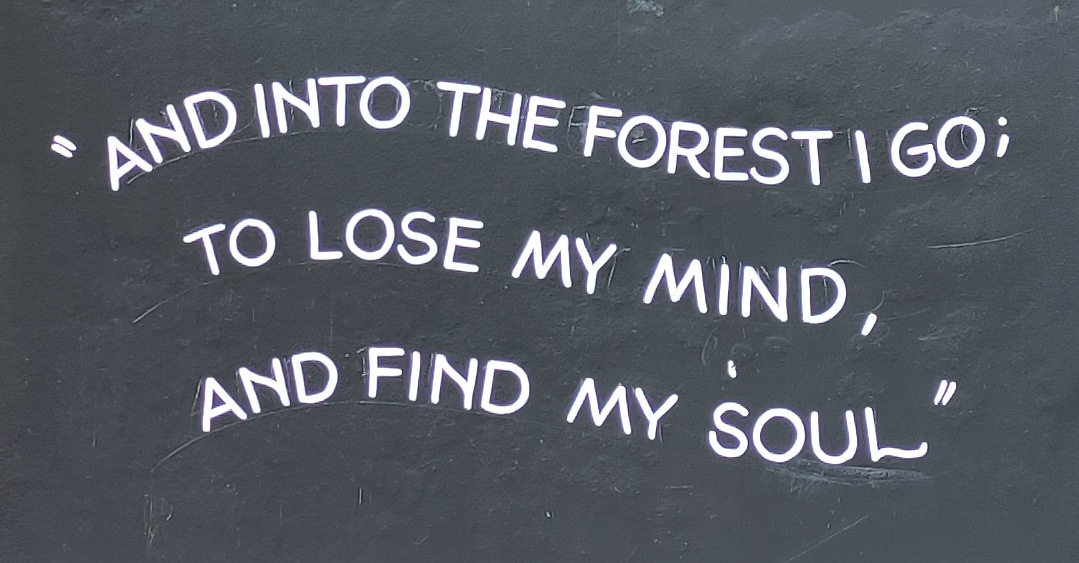 "AND INTO THE FOREST I GO;
TO LOSE MY MIND,
AND FIND MY SOUL"